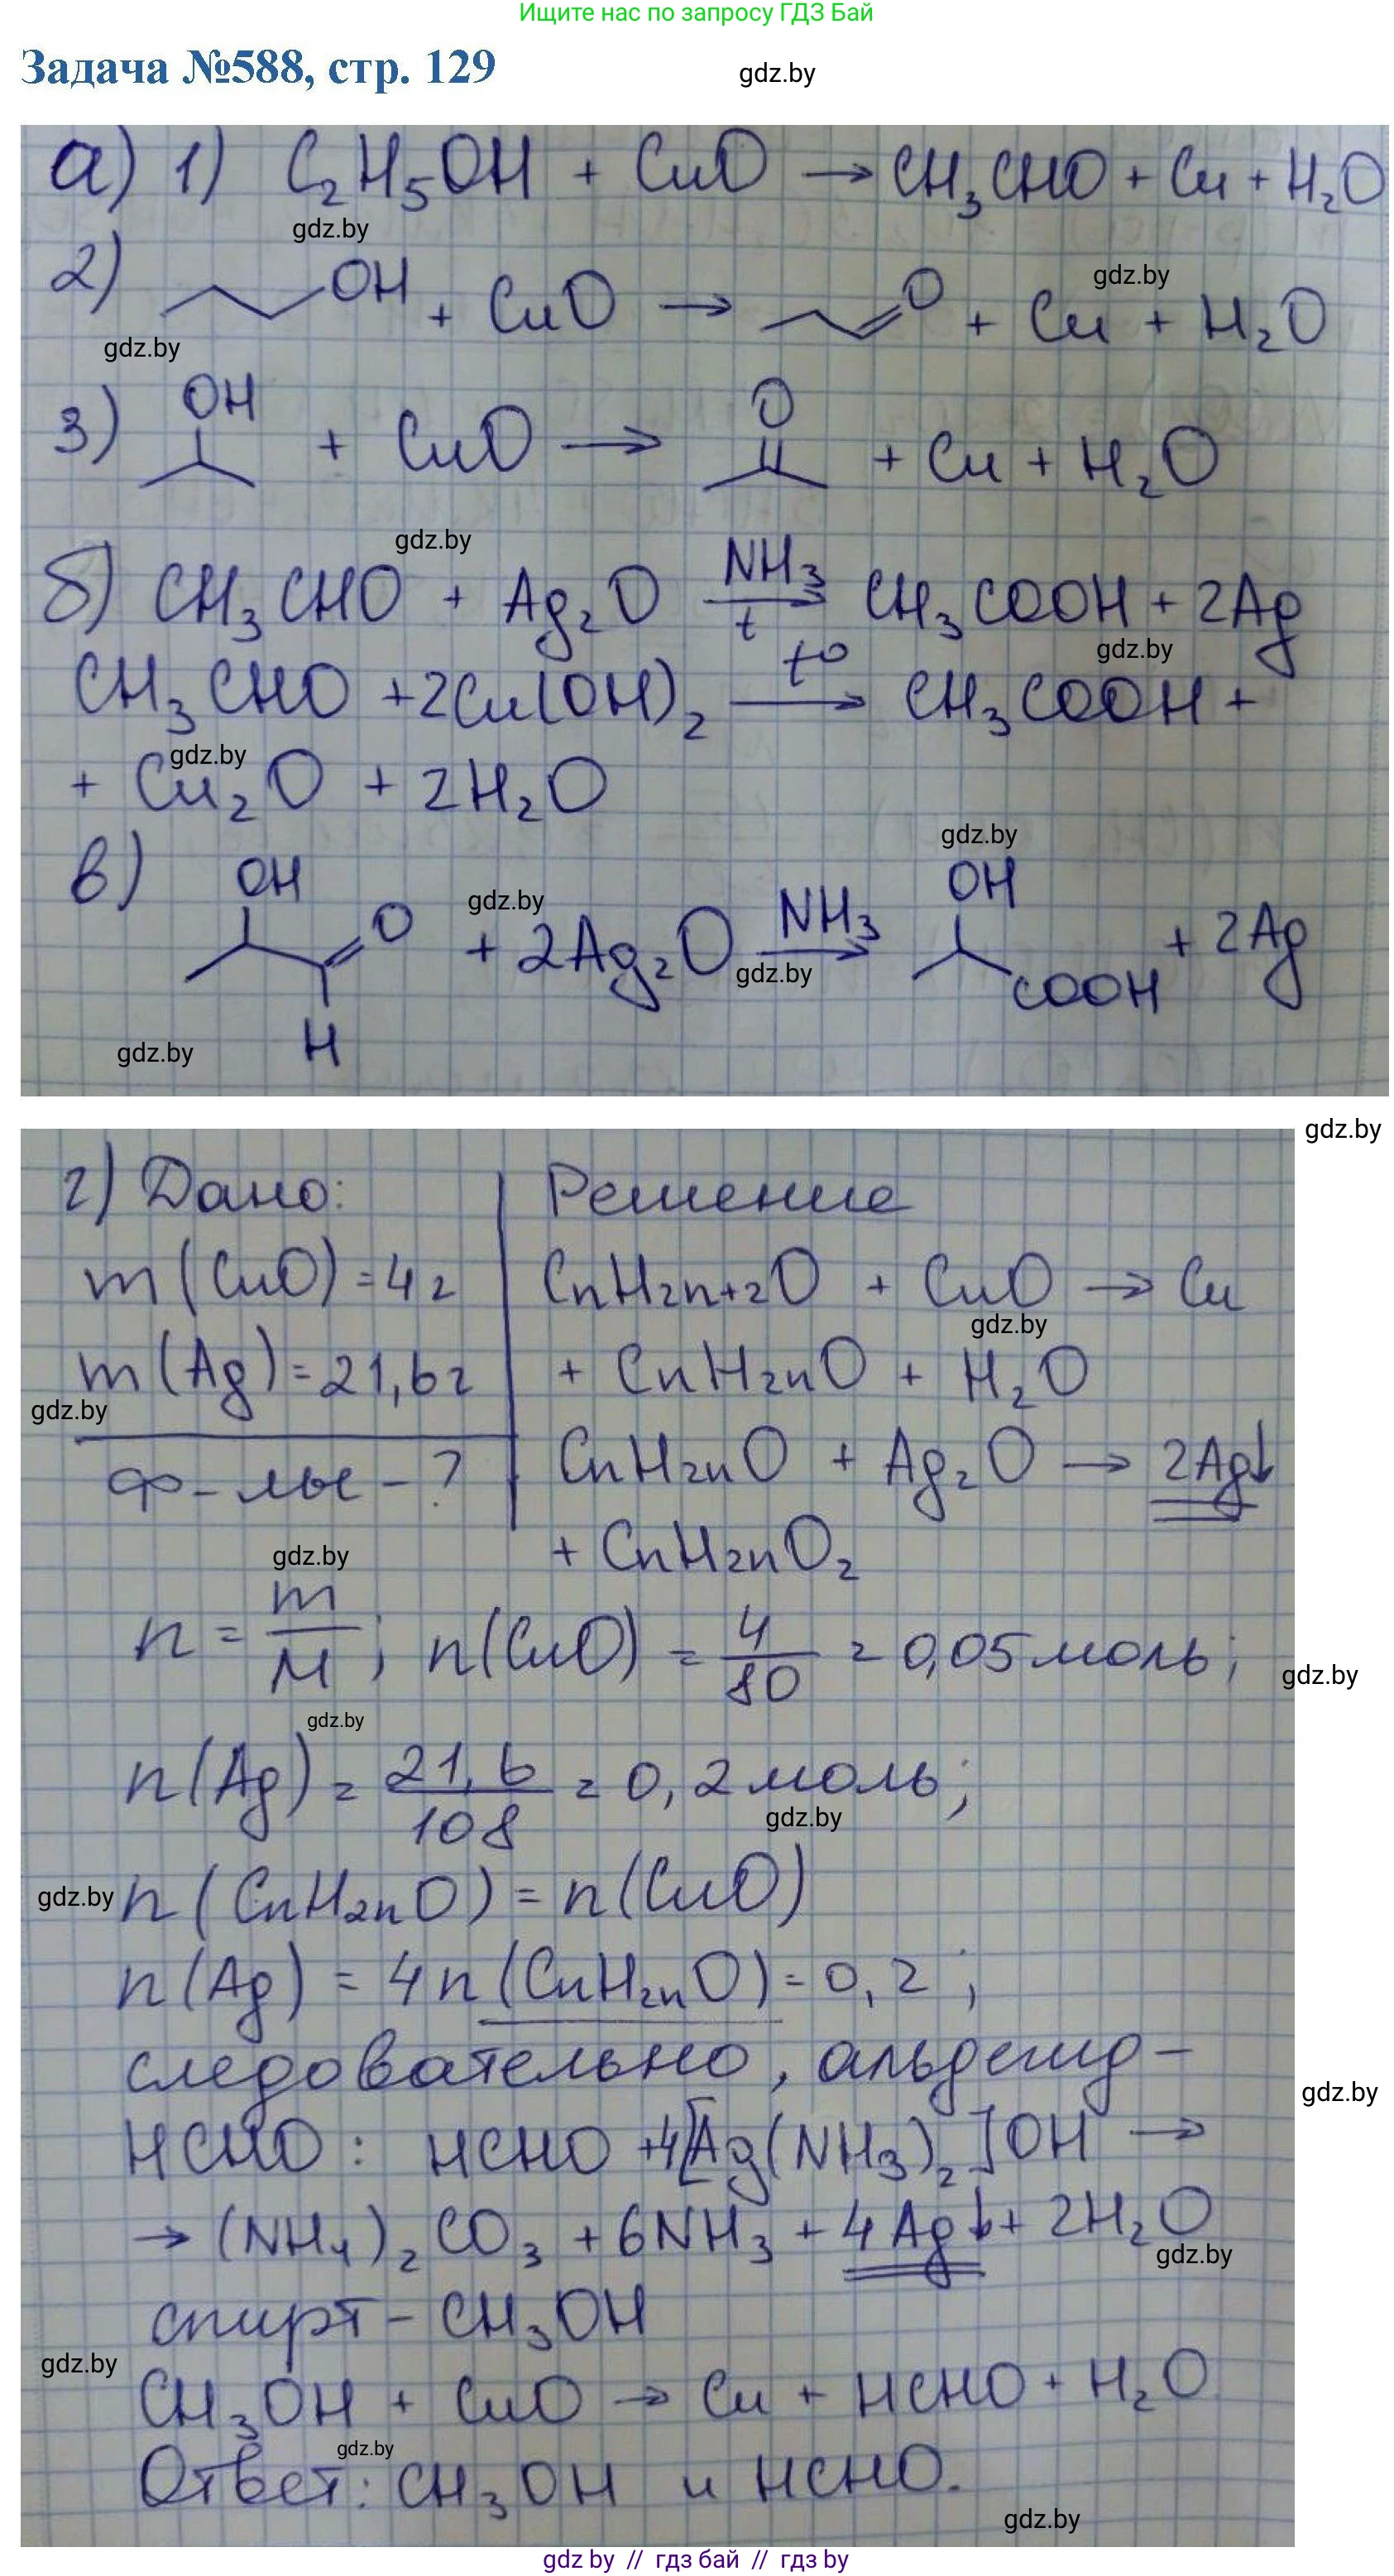 Ищите нас по запросу ГДЗ Бай
Задача №588, стр. 129
gdz.by
а) 1) C₂H₅OH + CuO → CH₃CHO + Cu + H₂O
gdz.by
2) OH + CuO → O + Cu + H₂O
gdz.by
gdz.by
3) OH + CuO → O + Cu + H₂O
gdz.by
б) CH₃CHO + Ag₂O NH₃ → t CH₃COOH + 2Ag
gdz.by
CH₃CHO + 2Cu(OH)₂ t° → CH₃COOH +
gdz.by
+ Cu₂O + 2H₂O
gdz.by
в) OH O H + 2Ag₂O NH₃ → OH COOH + 2Ag
gdz.by
gdz.by
gdz.by
gdz.by
г) Дано: Решение
m(CuO) = 4 г CnH2n+2O + CuO → Cu
gdz.by
m(Ag) = 21,6 г + CnH2nO + H₂O
gdz.by
ф-лы - ? CnH2nO + Ag₂O → 2Ag↓
+ CnH2nO₂
gdz.by
n = m/M; n(CuO) = 4/80 = 0,05 моль;
gdz.by
gdz.by
n(Ag) = 21,6/108 = 0,2 моль;
gdz.by
gdz.by
n(CnH2nO) = n(CuO)
n(Ag) = 4n(CnH2nO) = 0,2;
следовательно, альдегид -
gdz.by
HCHO: HCHO + 4[Ag(NH₃)₂]OH →
→ (NH₄)₂CO₃ + 6NH₃ + 4Ag↓ + 2H₂O
gdz.by
спирт - CH₃OH
gdz.by
CH₃OH + CuO → Cu + HCHO + H₂O
gdz.by
Ответ: CH₃OH и HCHO.
gdz.by
gdz by // гдз бай // гдз by